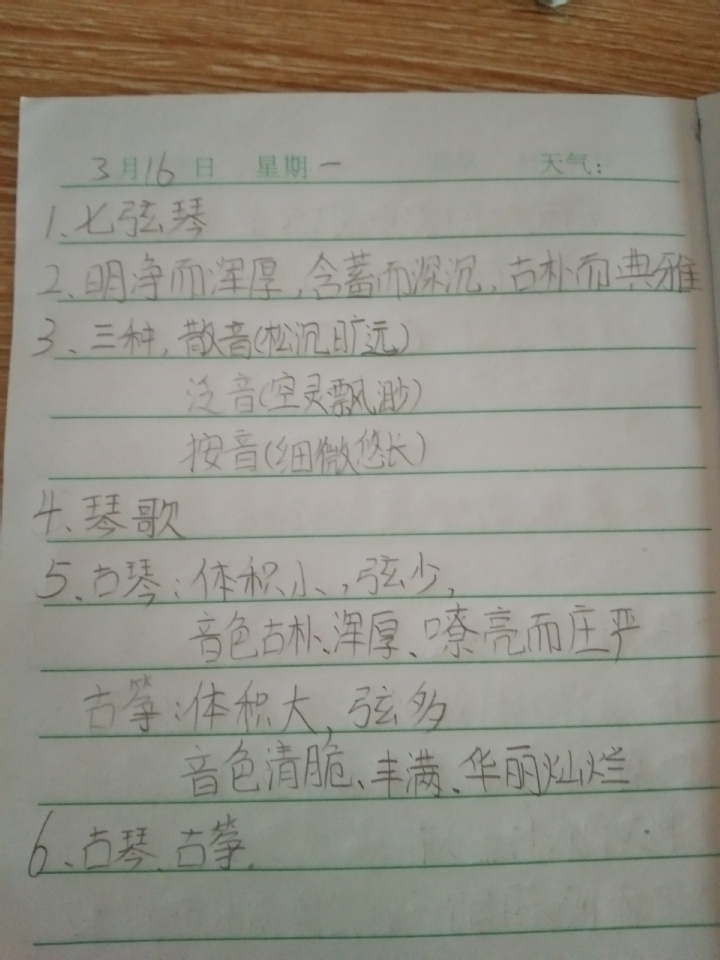 3月16日 星期一 天气：
1、七弦琴
2、明净而浑厚，含蓄而深沉，古朴而典雅
3、三种，散音(松沉旷远)
泛音(空灵飘渺)
按音(细微悠长)
4、琴歌
5、古琴：体积小，弦少，
音色古朴、浑厚、嘹亮而庄严
古筝：体积大，弦多
音色清脆、丰满、华丽灿烂
6、古琴、古筝.